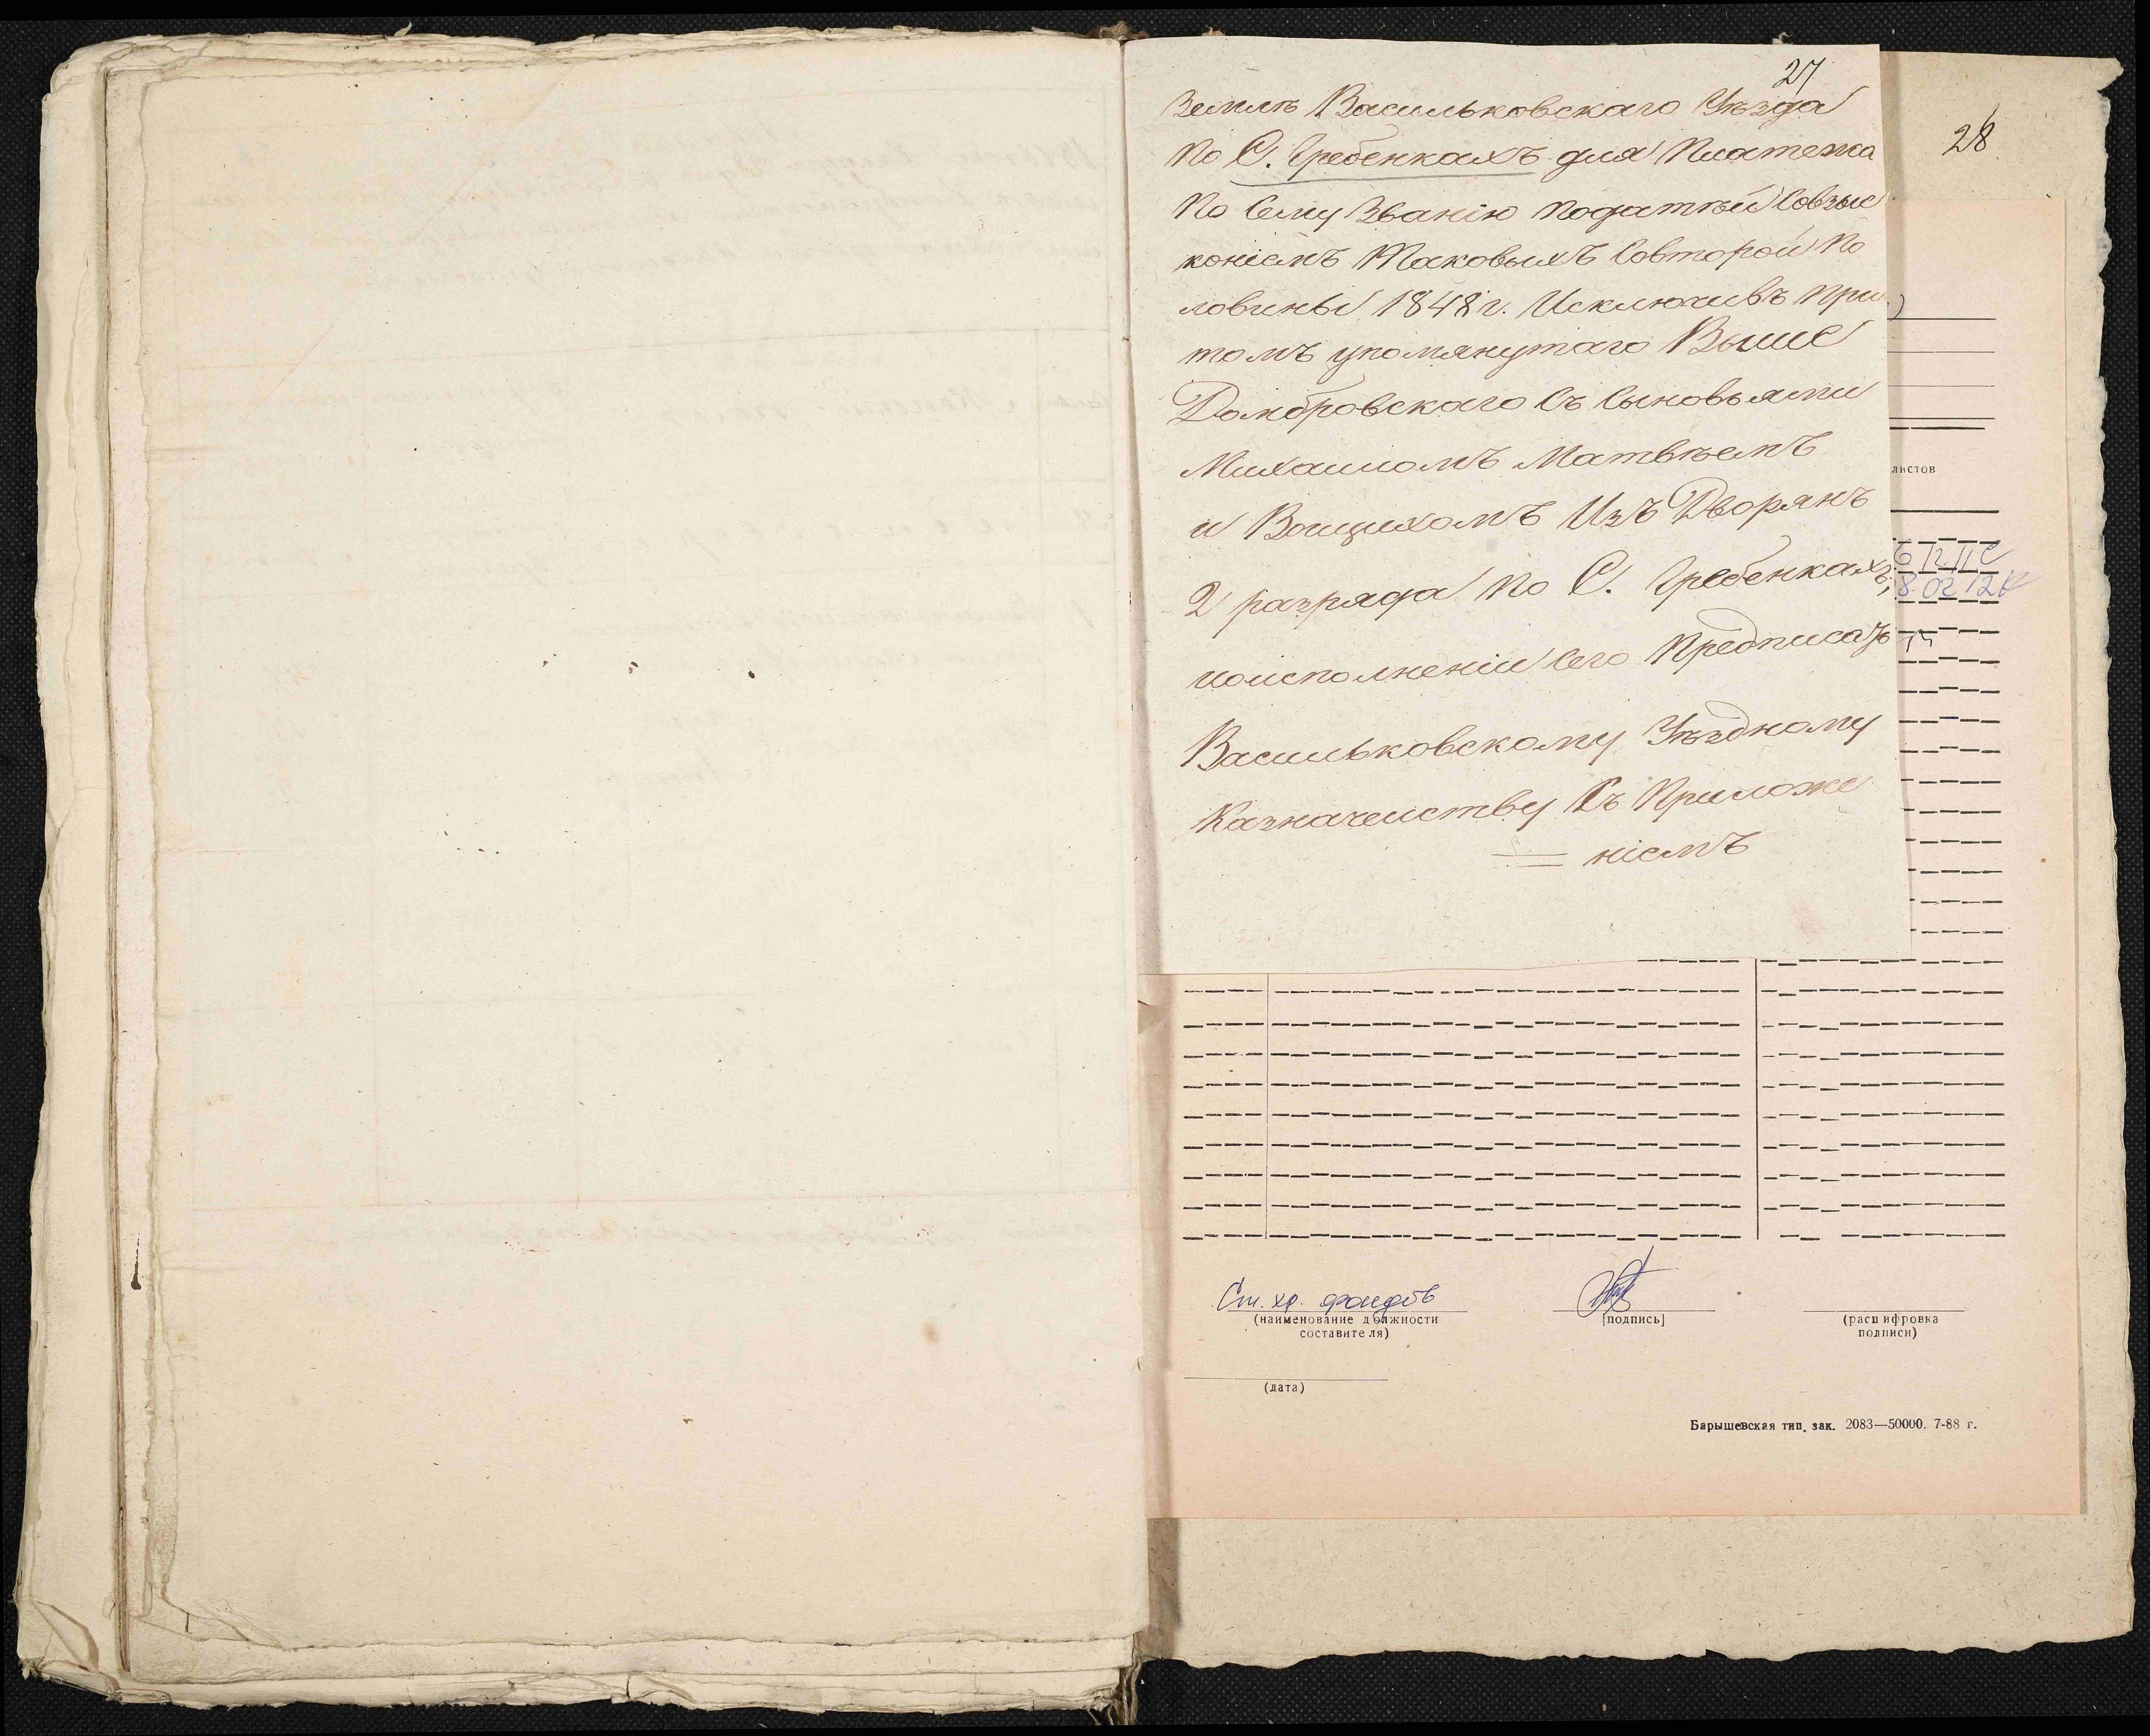 27
28
Землѣ Васильковскаго Уѣзда
По С. Гребенкахъ для Платежа
По Сему Званію Податѣй Совзыс
коніемъ Таковыхъ Совторой По
ловины 1848 г. Исключивъ при
томъ упомянутаго Выше
Домбровскаго Съ Сыновьями
Михаиломъ Матвѣемъ
и Войцихомъ Изъ Дворянъ
2 разряда По С. Гребенкахъ,
иоисполненіи Сего Предписать
Васильковскому Уѣздному
Казначейству Съ Приложе
= ніемъ
листов
Ст. хр. фондов
(наименование должности
составителя)
[подпись]
(расшифровка
подписи)
(дата)
Барышевская тип. зак. 2083—50000. 7-88 г.